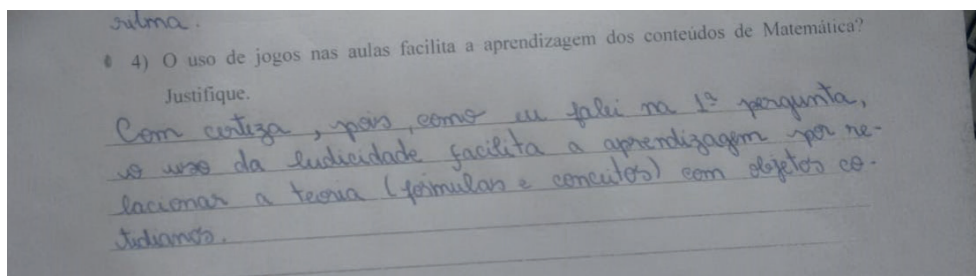 rilma.
4) O uso de jogos nas aulas facilita a aprendizagem dos conteúdos de Matemática?
Justifique.
Com certeza, pois, como eu falei na 1ª pergunta,
o uso da ludicidade facilita a aprendizagem por re-
lacionar a teoria (fórmulas e conceitos) com objetos co-
tidianos.